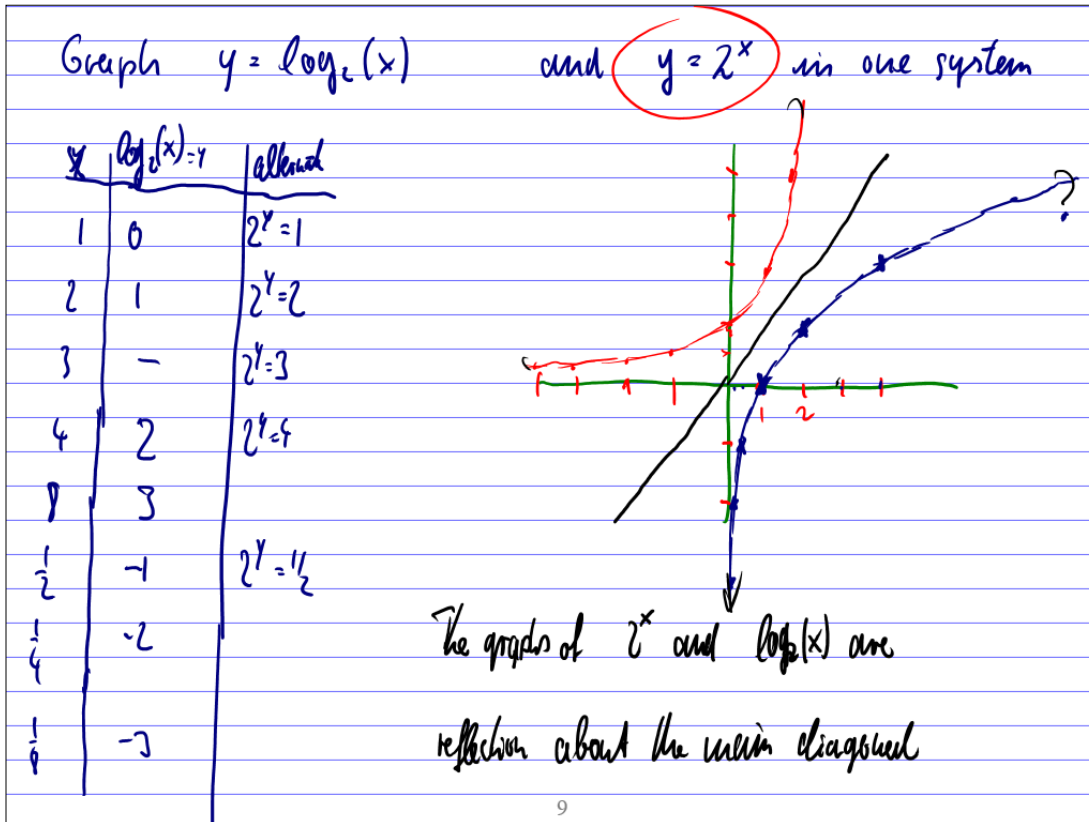 Graph y = log₂(x) and y = 2ˣ in one system
x log₂(x)=y
1 0 2ʸ=1
2 1 2ʸ=2
3 – 2ʸ=3
4 2 2ʸ=4
8 3
1/2 -1 2ʸ=1/2
1/4 -2
1/8 -3
1 2
?
The graphs of 2ˣ and log₂(x) are
reflection about the main diagonal
9